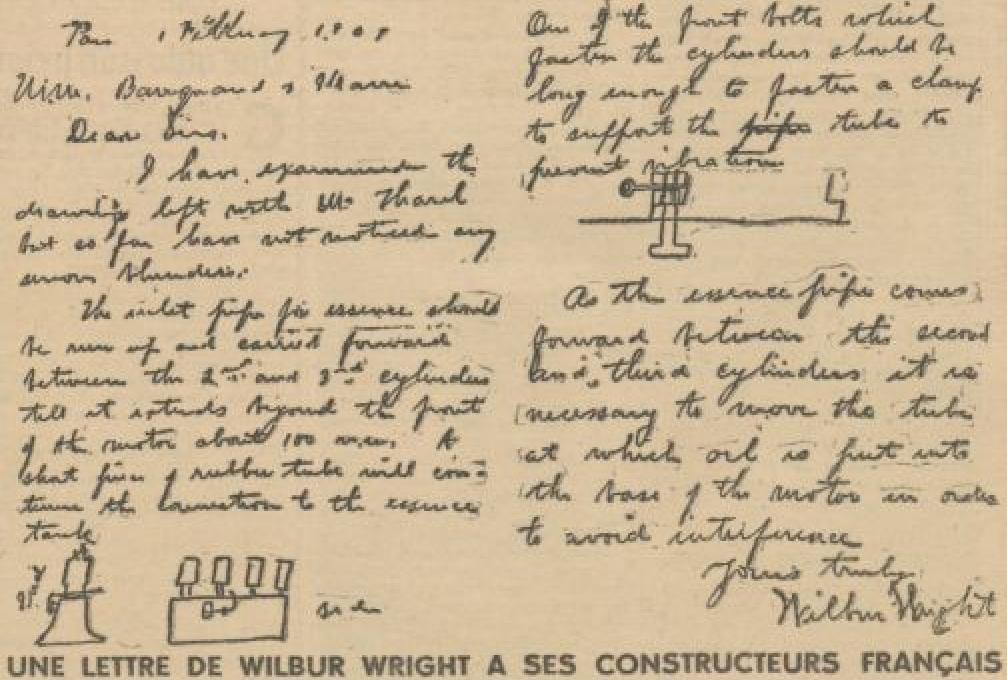 Messrs. Barriquand & Marre
Dear Sirs.
I have examined the
drawings left with Mr
but so far have not noticed any
serious blunders.
The inlet pipe for essence should
be run up and carried forward
between the 2nd and 3rd cylinders
till it extends beyond the front
of the motor about 100 m.m. A
short piece of rubber tube will con-
tinue the connection to the essence
tank
side
One of the front bolts which
fasten the cylinders should be
long enough to fasten a clamp
to support the pipe tube to
prevent vibration
As the essence pipe comes
forward between the second
and third cylinders it is
necessary to move the tube
at which oil is put into
the base of the motor in order
to avoid interference
Yours truly
Wilbur Wright
UNE LETTRE DE WILBUR WRIGHT A SES CONSTRUCTEURS FRANÇAIS